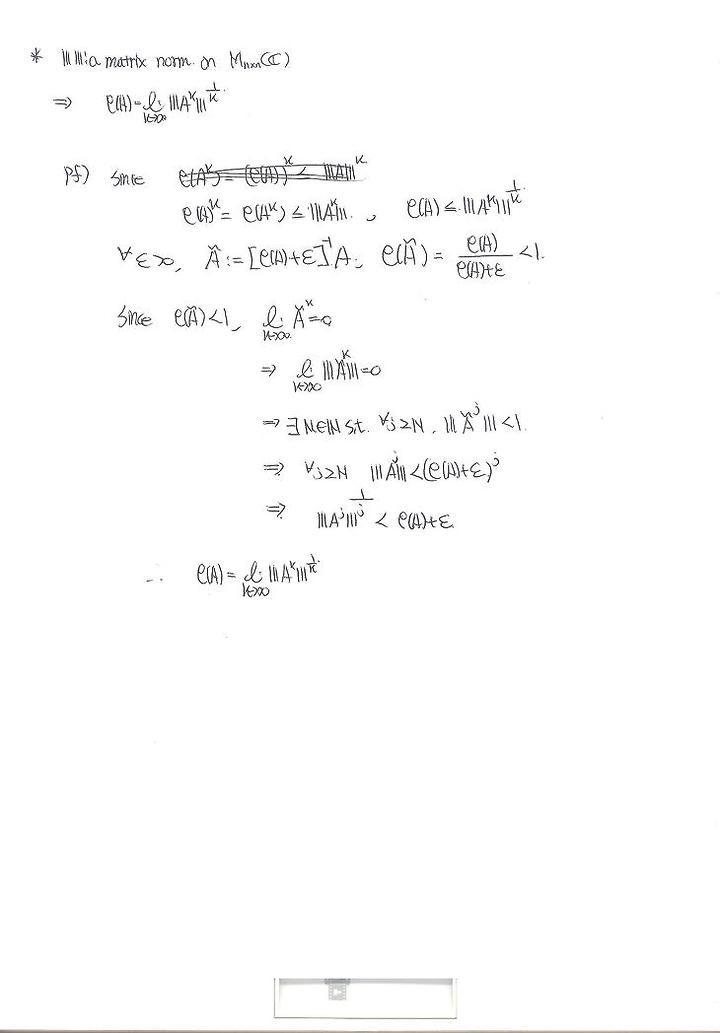 * ||| |||: a matrix norm on Mₙₓₙ(ℂ)
⇒ ρ(A) = lim_{k→∞} |||Aᵏ|||^{1/k}.
pf) Since ρ(Aᵏ) = (ρ(A))ᵏ ≤ |||A|||ᵏ
ρ(A)ᵏ = ρ(Aᵏ) ≤ |||Aᵏ|||. , ρ(A) ≤ |||Aᵏ|||^{1/k}
∀ε>0, Ã := [ρ(A)+ε]⁻¹A, ρ(Ã) = ρ(A)/(ρ(A)+ε) < 1.
Since ρ(Ã)<1, lim_{k→∞} Ãᵏ = 0
⇒ lim_{k→∞} |||Ãᵏ||| = 0
⇒ ∃N∈ℕ s.t. ∀j≥N, |||Ãʲ||| < 1.
⇒ ∀j≥N |||Aʲ||| < (ρ(A)+ε)ʲ
⇒ |||Aʲ|||^{1/j} < ρ(A)+ε
∴ ρ(A) = lim_{k→∞} |||Aᵏ|||^{1/k}.